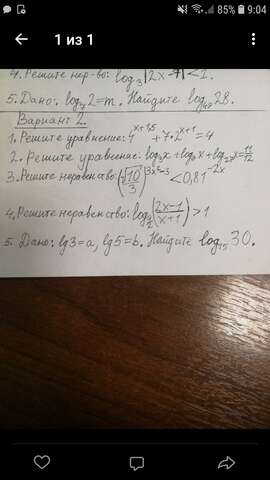 85% 9:04
1 из 1
4. Решите нер-во: log₃|2x-7|<2.
5. Дано: log₇2=m. Найдите log₄₉28.
Вариант 2.
1. Решите уравнение: 4^(x+1,5) + 7·2^(x+1) = 4
2. Решите уравнение: log₃x+log₉x+log₂₇x=11/12
3. Решите неравенство: <0,81^(-2x)
4. Решите неравенство: (2x-1)/(x+1) >1
5. Дано: lg3=a, lg5=b. Найдите log₁₅30.